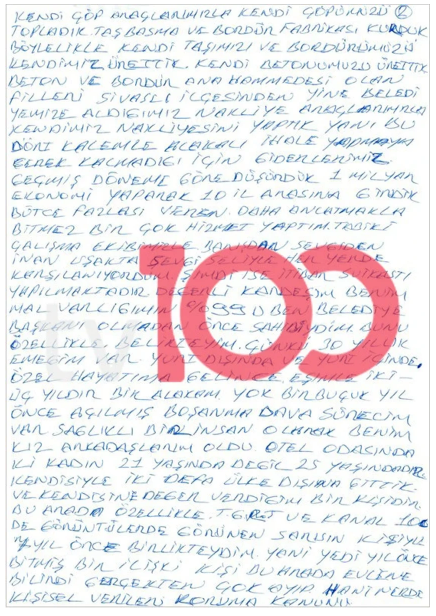 KENDİ ÇÖP ARAÇLARIMIZLA KENDİ ÇÖPÜMÜZÜ 2
TOPLADIK. TAŞ BASMA VE BORDÜR FABRİKASI KURDUK
BÖYLELİKLE KENDİ TAŞIMIZI VE BORDÜRÜMÜZÜ
KENDİMİZ ÜRETTİK. KENDİ BETONUMUZU ÜRETTİK
BETON VE BORDÜR ANA HAMMEDESİ OLAN
FİLLERİ SİVASLI İLÇESİNDEN YİNE BELEDİ
YEMİZE ALDIĞIMIZ NAKLİYE ARAÇLARIMIZLA
KENDİMİZ NAKLİYESİNİ YAPTIK YANİ BU
DÖRT KALEMLE ALAKALI İHALE YAPMAYA
GEREK KALMADIĞI İÇİN GİDERLERİMİZ
GEÇMİŞ DÖNEME GÖRE DÜŞÜRDÜK 1 MİLYAR
EKONOMİ YAPARAK 10 İL ARASINA GİRDİK
BÜTÇE FAZLASI VEREN. DAHA ANLATMAKLA
BİTMEZ BİR ÇOK HİZMET YAPTIM. TABİKİ
ÇALIŞMA EKİBİMİZLE BANIDAN SEVGİDEN
İNAN UŞAKTA SEVGİ SELİYLE HER YERDE
KARŞILANIYORDUM ŞİMDİ İSE İTİBAR SUİKASTI
YAPILMAKTADIR DEĞERLİ KARDEŞİM BENİM
MAL VARLIĞIMIN %99 U BEN BELEDİYE
BAŞKANI OLMADAN ÖNCE SAHİBİYDİM BUNU
ÖZELLİKLE BELİRTEYİM. ÇÜNKÜ 30 YILLIK
EMEĞİM VAR YURT DIŞINDA VE YURT İÇİNDE.
ÖZEL HAYATIMA GELİNCE EŞİMLE İKİ-
ÜÇ YILDIR BİR ALAKAM YOK BİR BUÇUK YIL
ÖNCE AÇILMIŞ BOŞANMA DAVA SÜRECİM
VAR SAĞLIKLI BİR İNSAN OLARAK BENİM
KIZ ARKADAŞLARIM OLDU OTEL ODASINDA
Kİ KADIN 21 YAŞINDA DEĞİL 25 YAŞINDADIR
KENDİSİYLE İKİ DEFA ÜLKE DIŞINA GİTTİK.
VE KENDİSİNE DEĞER VERDİĞİM BİR KİŞİDİR.
BU ARADA ÖZELLİKLE TGRT VE KANAL 100
DE GÖRÜNTÜLERDE GÖRÜNEN SARIŞIN KİŞİYLE
7 YIL ÖNCE BİRLİKTEYDİM. YANİ YEDİ YIL ÖNCE
BİTMİŞ BİR İLİŞKİ KİŞİ BU ARADA EVLİNE
BİLİNDİ GERÇEKTEN ÇOK AYIP HANİ NERDE
KİŞİSEL VERİLERİ KORUMA KANUNU
tv100